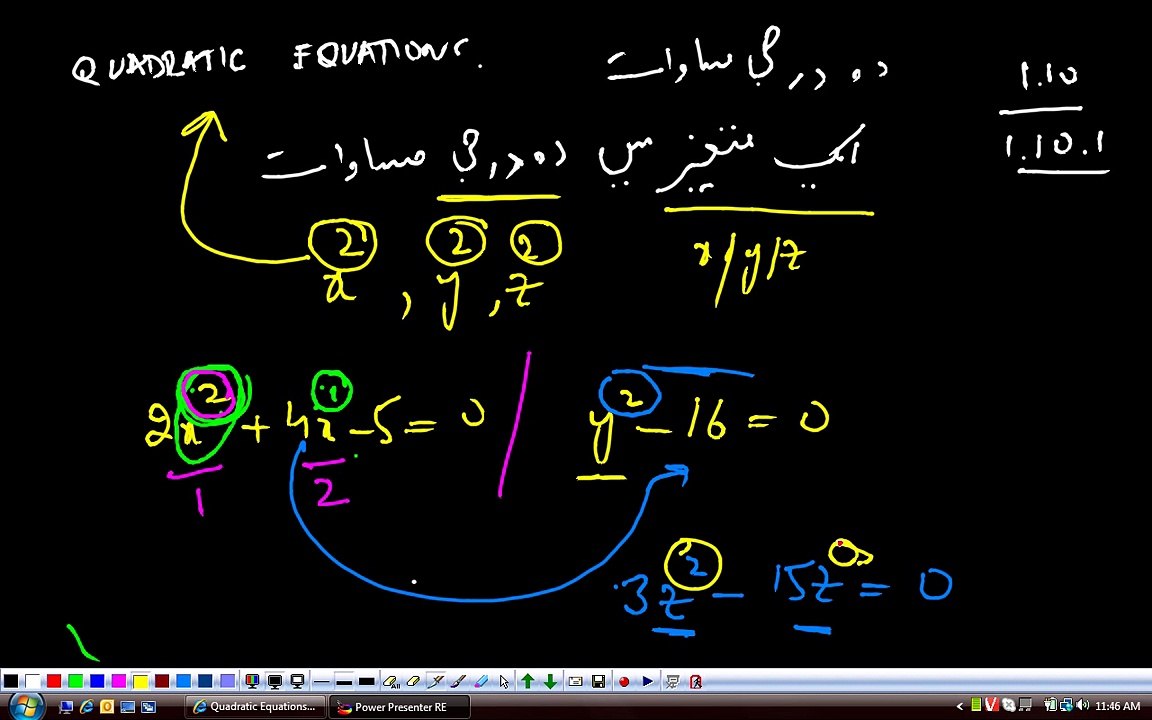 QUADRATIC EQUATIONS.
دو درجی مساوات
1.10
1.10.1
ایک متغیر میں دو درجی مساوات
x/y/z
x², y², z²
2x² + 4x¹ - 5 = 0
y² - 16 = 0
1
2
3z² - 15z = 0
Quadratic Equations...
Power Presenter RE
11:46 AM